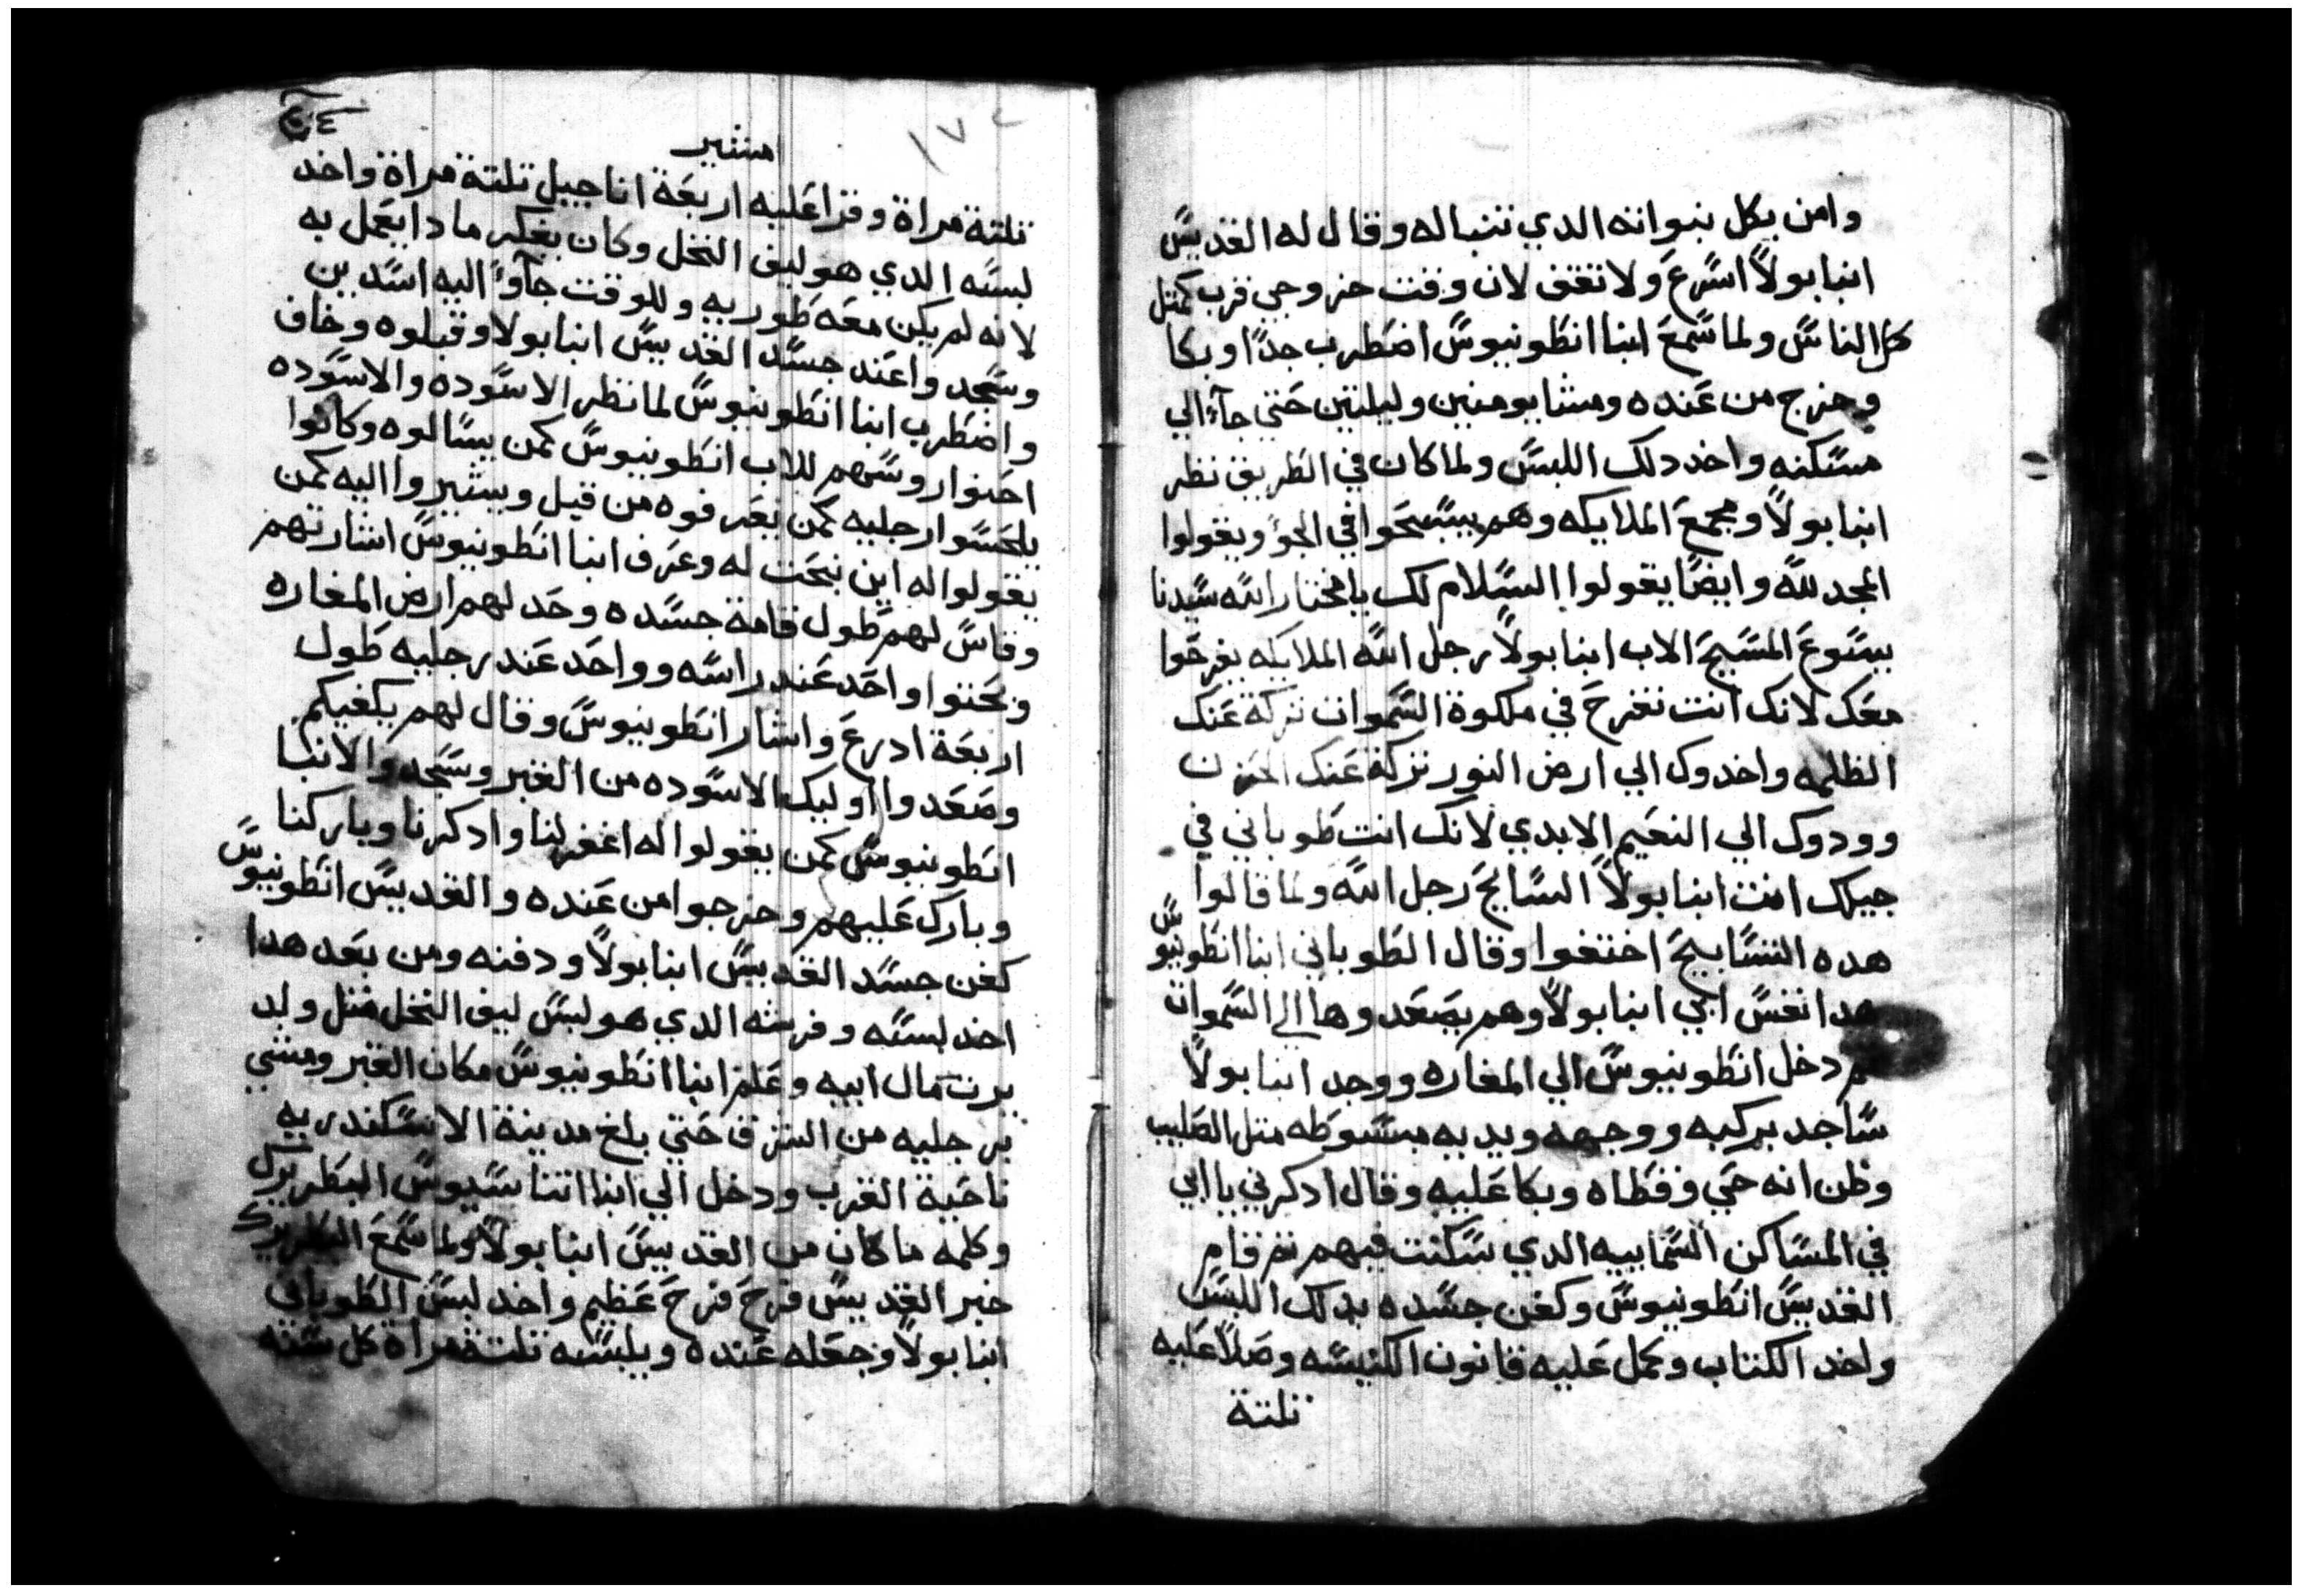 وامن بكل بنواته الدي تنبا له وقال له القديس
انبا بولا اسرع ولا تقف لان وقت خروجي قرب كمتل
كل الناس ولما سمع انبا انطونيوس اضطرب جدا وبكا
وخرج من عنده ومشا يومين وليلتين حتي جآء الي
مسكنه واخد دلك اللبس ولما كان في الطريق نظر
انبا بولا ومجمع الملايكه وهم يسبحوا في الجو ويقولوا
المجد لله وايضا يقولوا السلام لك يا مختار الله سيدنا
يسوع المسيح الاب انبا بولا رجل الله الملايكه يفرحوا
معك لانك انت تفرح في ملكوة السموات تركة عنك
الظلمه واخدوك الي ارض النور تركة عنك الحزن
وودوك الي النعيم الابدي لانك انت طوباني في
جيلك انت انبا بولا السايح رجل الله ولما قالوا
هده التسابيح اختفوا وقال الطوباني انبا انطونيوس
هدا نفس ابي انبا بولا وهم يصعدوها الي السموات
تم دخل انطونيوس الي المغاره ووجد انبا بولا
ساجد بركبه ووجهه ويديه مبسوطه متل الصليب
وظن انه حي وفطاه وبكا عليه وقال ادكرني يا ابي
في المساكن السماييه الدي سكنت فيهم تم قام
القديس انطونيوس وكفن جسده بدلك اللبس
واخد الكتاب وكمل عليه قانون الكنيسه وصلا عليه
تلتة
١٧٤
امشير
تلتة مراة وقرا عليه اربعة اناجيل تلتة مراة واخد
لبسه الدي هو ليف النخل وكان يفكر مادا يعمل به
لانه لم يكن معه طوريه وللوقت جآوا اليه اسدين
وسجدوا عند جسد القديس انبا بولا وقبلوه وخاف
واضطرب انبا انطونيوس لما نظر الاسوده والاسوده
احنوا روسهم للاب انطونيوس كمن يسالوه وكانوا
يلحسوا رجليه كمن يعرفوه من قبل ويشيروا اليه كمن
يقولوا له اين نبحت له وعرف انبا انطونيوس اشارتهم
وقاس لهم طول قامة جسده وحد لهم ارض المغاره
وبحتوا واحد عند راسه وواحد عند رجليه طول
اربعة ادرع واشار انطونيوس وقال لهم يكفيكم
وصعدوا اوليك الاسوده من القبر وسجدوا لانبا
انطونيوس كمن يقولوا له اغفر لنا وادكرنا وباركنا
وبارك عليهم وخرجوا من عنده والقديس انطونيوس
كفن جسد القديس انبا بولا ودفنه ومن بعد هدا
اخد لبسه وفرشه الدي هو لبس ليف النخل متل ولد
يرت مال ابيه وعلم انبا انطونيوس مكان القبر ومشي
برجليه من الشرق حتي بلغ مدينة الاسكندريه
ناحية الغرب ودخل الي انبا اتناسيوس البطريرك
وكلمه ما كان من القديس انبا بولا ولما سمع البطريرك
خبر القديس فرح فرح عظيم واخد لبس الطوباني
انبا بولا وجعله عنده ويلبسه تلتة مراة كل سنه